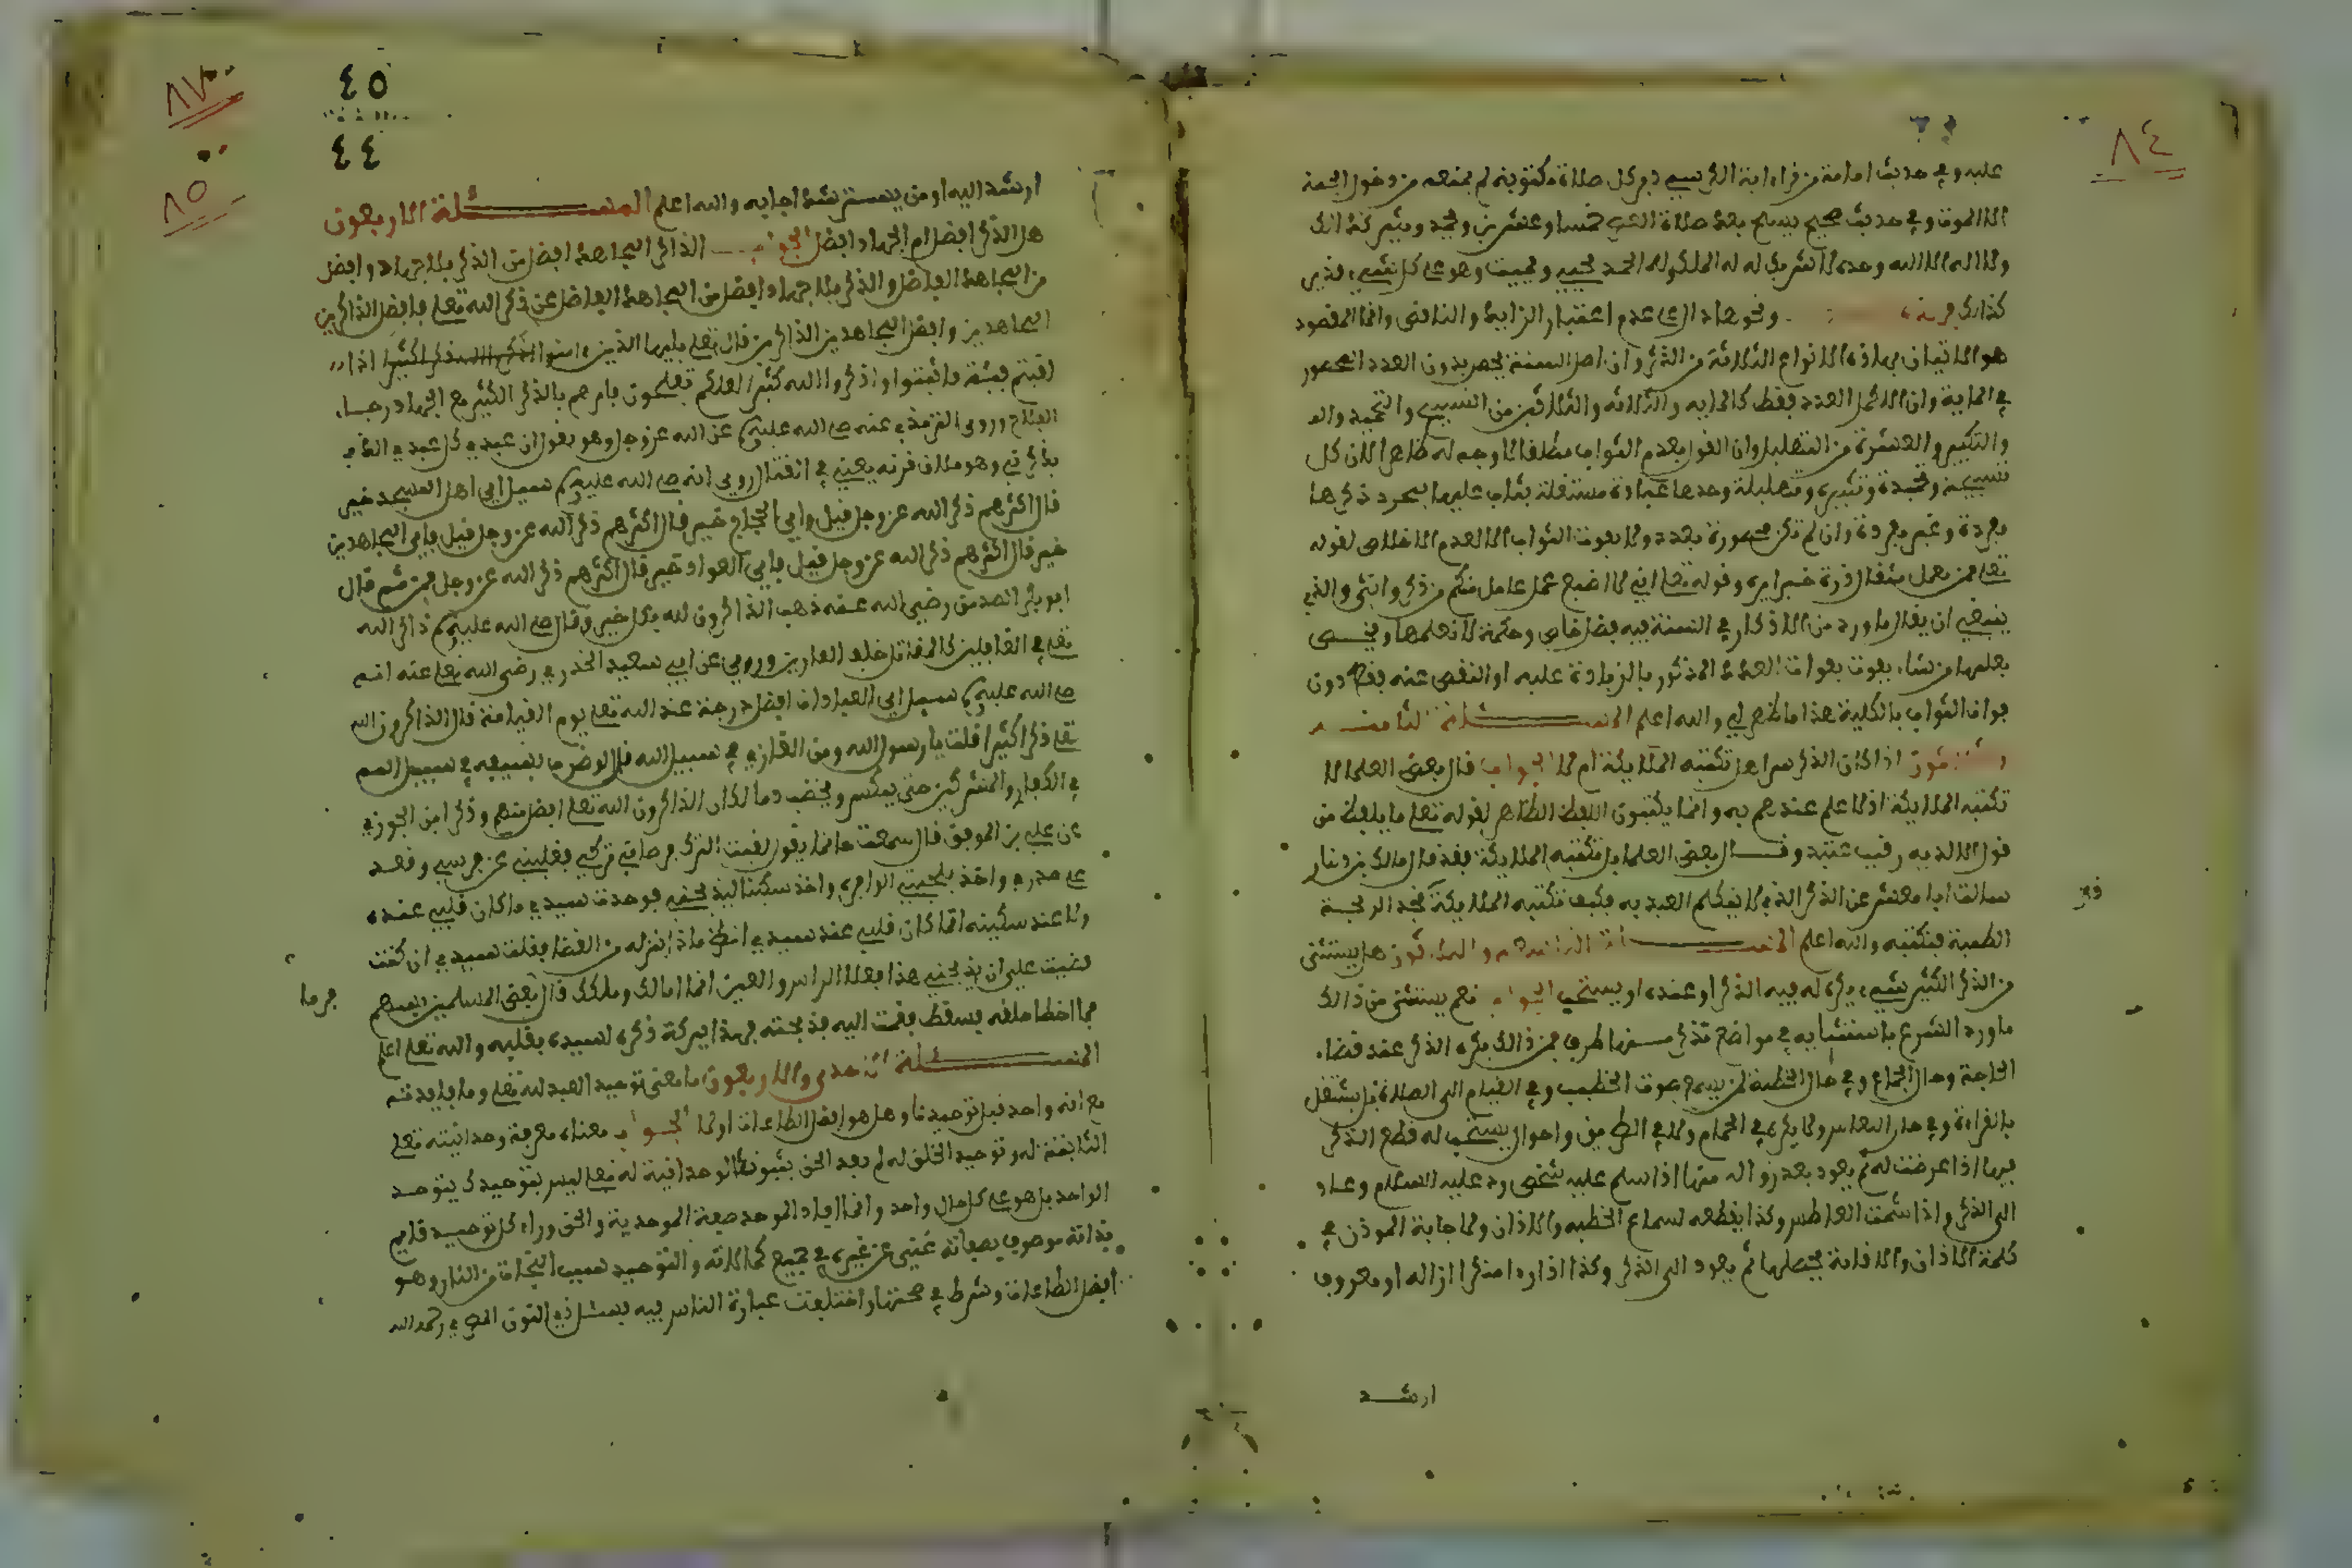 ٨٤
عليه وفي حديث امامة من قراءاية الكرسي دبر كل صلاة مكتوبة لم يمنعه من دخول الجنة
الا الموت وفي حديث صحيح يسبح بعد صلاة خمسا وعشرين ويحمد ويكبر كذالك
ولا اله الا الله وحده لا شريك له له الملك وله الحمد يحيي ويميت وهو على كل شيء قدير
كذالك ونحو هاذا الى عدم اعتبار الزايد والناقص وانما المقصود
هو الاتيان بهاذه الانواع الثلاثة من الذكر وان اصل السنة يحصل بدون العدد المحصور
في الماية وان الاكمل العدد فقط كالمايه والثلاثه والثلاثين من التسبيح والتحميد وال
والتكبير والعشرة من التهليل وان القول بعدم الثواب مطلقا لا وجه له ظاهر لان كل
تسبيحة وتحميدة وتكبيرة وتهليلة وحدها عبادة مستقلة يثاب عليها بمجرد ذكرها
مفردة وغير مفردة وان لم تكن محصورة بعدد ولا يفوت الثواب الا لعدم الاخلاص لقوله
تعلى فمن يعمل مثقال ذرة خيرا يره وقوله تعلى اني لا اضيع عمل عامل منكم من ذكر وانثى والذي
ينبغي ان يقال ما ورد من الاذكار في السنة فيه فضل خاص وحكمة لا نعلمها ويخص
بعلمها من شاء يفوت بفوات العدد المذكور بالزيادة عليه او النقص عنه فقط دون
فوات الثواب بالكلية هذا ما ظهر لي والله اعلم المسئلة الثامنة
وثلاثون اذا كان الذكر سرا هل تكتبه الملايكة ام لا الجواب قال بعض العلما لا
تكتبه الملايكة اذ لا علم عندهم به وانما يكتبون اللفظ الظاهر لقوله تعلى ما يلفظ من
قول الا لديه رقيب عتيد وقال بعض العلما بل تكتبه الملايكة فقد قال مالك بن دينار
سالت ابا معشر عن الذكر الذي لا يتكلم العبد به فكيف تكتبه الملايكة قال تجد الريح
الطيبة فتكتبه والله اعلم المسئلة التاسعة والثلاثون هل يستثنى
من الذكر الكثير شيء يكره له فيه الذكر او عنده او يستحب الجواب نعم يستثنى من ذالك
ما ورد الشرع باستثنايه في مواضع نذكر منها طرفا فمن ذالك يكره الذكر عند قضاء
الحاجة وحال الجماع وفي حال الخطبة لمن يسمع صوت الخطيب وفي القيام الى الصلاة بل يشتغل
بالقراءة وفي حال النعاس ولا يكره في الحمام ولا في الطريق واحوال يستحب له قطع الذكر
فيها اذا عرضت له ثم يعود بعد زواله منها اذا سلم عليه شخص رد عليه السلام وعاد
الى الذكر واذا شمت العاطس وكذا يقطعه لسماع الخطبه والاذان ولاجابة الموذن في
كلمة الاذان والاقامة يحصلها ثم يعود الى الذكر وكذا اذا را منكرا ازاله او معروفا
ارشد
٨٧
٨٥
٤٥
٤٤
ارشد اليه او من يسترشد اجابه والله اعلم المسئلة الاربعون
هل الذكر افضل ام الجهاد افضل الجواب الذاكر المجاهد افضل من الذكر بلا جهاد وافضل
من المجاهد الغافل والذكر بلا جهاد افضل من المجاهد الغافل عن ذكر الله تعلى فافضل الذاكرين
المجاهدين وافضل المجاهدين الذاكرين قال تعلى يايها الذين ءامنوا اذا
لقيتم فئة فاثبتوا واذكروا الله كثيرا لعلكم تفلحون فامرهم بالذكر الكثير مع الجهاد رجاء
الفلاح وروى الترمذي عنه صلى الله عليه وسلم عن الله عز وجل وهو يقول ان عبدي كل عبدي الذي
يذكرني وهو ملاق قرنه يعني في القتال روي انه صلى الله عليه وسلم سيل اي اهل المسجد خير
قال اكثرهم ذكر الله عز وجل قيل واي الحجاج خير قال اكثرهم ذكر الله عز وجل قيل فاي المجاهدين
خير قال اكثرهم ذكر الله عز وجل قيل فاي العواد خير قال اكثرهم ذكر الله عز وجل فمن ثم قال
ابو بكر الصديق رضي الله عنه ذهب الذاكرون لله بكل خير وقال صلى الله عليه وسلم ذاكر الله
تعلى في الغافلين كالمقاتل خلف الفارين وروي عن ابي سعيد الخدري رضي الله تعلى عنه انه
صلى الله عليه وسلم سيل اي العباد افضل درجة عند الله تعلى يوم القيامة قال الذاكرون الله
تعلى ذكرا كثيرا قلت يا رسول الله ومن الغازي في سبيل الله قال لو ضرب بسيفه في سبيل الله
في الكفار والمشركين حتى ينكسر ويخضب دما لكان الذاكرون الله تعلى افضل منهم وذكر ابن الجوزي
عن علي بن الموفق قال سمعت حاتما يقول لقيت الترك فرماني تركي فقلبني عن فرسي وقعد
على صدري واخذ بلحيتي الوافرة واخذ سكينا ليذبحني فوحق سيدي ما كان قلبي عنده
ولا عند سكينه انما كان قلبي عند سيدي انظر ماذا ينزله من القضا فقلت سيدي ان كنت
قضيت علي ان يذبحني هذا فعلى الراس والعين انما انا لك وملكك فرماه بعض المسلمين بسهم
فما اخطا حلقه فسقط فقمت اليه فذبحته فهذا بركة ذكره لسيده بقلبه والله تعلى اعلم
المسئلة الحدى والاربعون ما معنى توحيد العبد لله تعلى وما فايدته
مع انه واحد قبل توحيدنا وهل هو افضل الطاعات اولا الجواب معناه معرفة وحدانيته تعلى
الثابتة له وتوحيد الخلق له لم يفد الحق ثبوت الوحدانية له تعلى ليس بتوحيدك يتوحد
الواحد بل هو على كل حال واحد وانما افاد الموحد صفة الموحدية والحق وراء كل توحيد قايم
بذاته موصوف بصفاته غني عن غيره في جميع كمالاته والتوحيد سبب النجاة من النار وهو
افضل الطاعات وشرط في صحتها واختلفت عبارة الناس فيه فسئل ذي النون المصري رحمه الله